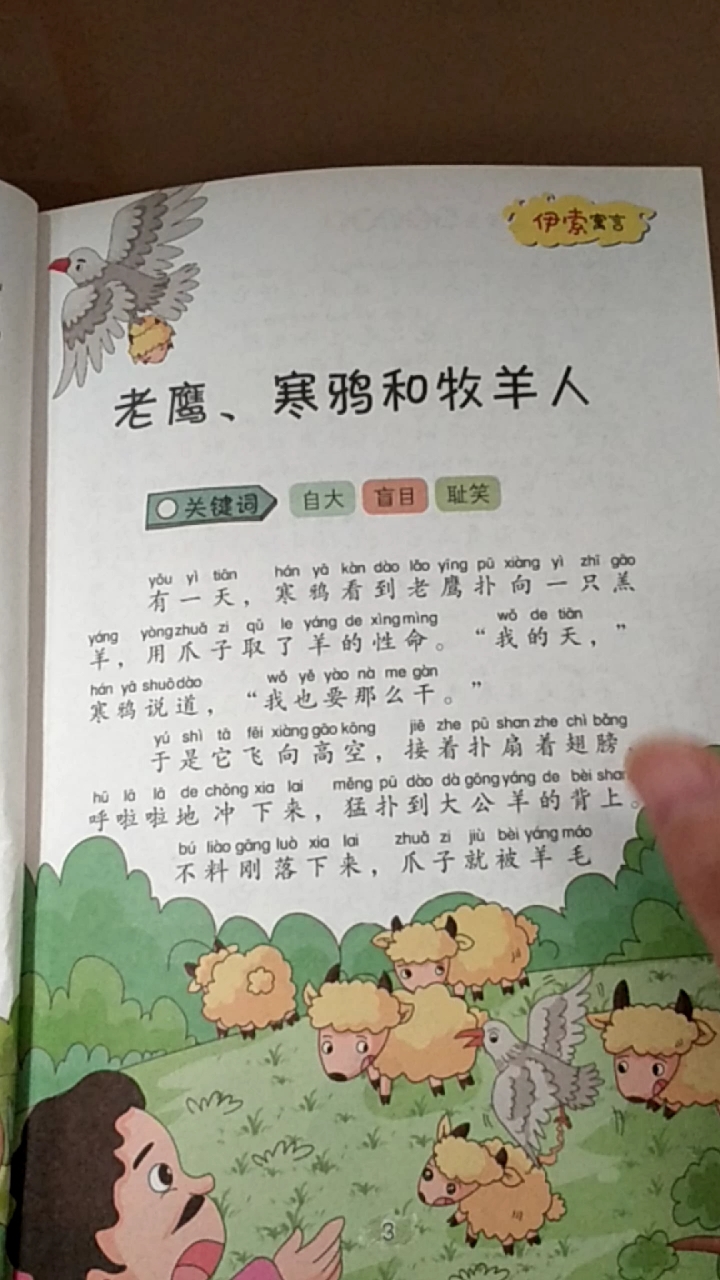 伊索寓言
老鹰、寒鸦和牧羊人
关键词 自大 盲目 耻笑
yǒu yì tiān hán yā kàn dào lǎo yīng pū xiàng yì zhī gāo
有一天，寒鸦看到老鹰扑向一只羔
yáng yòng zhuǎ zi qǔ le yáng de xìng mìng wǒ de tiān
羊，用爪子取了羊的性命。“我的天，”
hán yā shuō dào wǒ yě yào nà me gàn
寒鸦说道，“我也要那么干。”
yú shì tā fēi xiàng gāo kōng jiē zhe pū shan zhe chì bǎng
于是它飞向高空，接着扑扇着翅膀
hū lā lā de chōng xia lai měng pū dào dà gōng yáng de bèi shang
呼啦啦地冲下来，猛扑到大公羊的背上。
bú liào gāng luò xia lai zhuǎ zi jiù bèi yáng máo
不料刚落下来，爪子就被羊毛
3